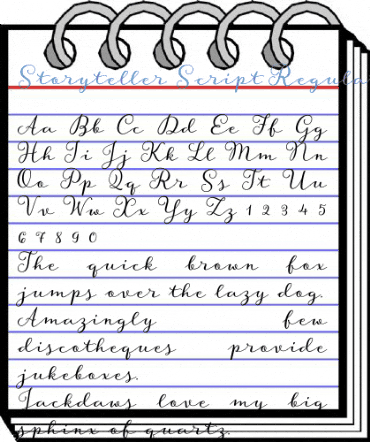 Storyteller Script Regula
Aa Bb Cc Dd Ee Ff Gg
Hh Ii Jj Kk Ll Mm Nn
Oo Pp Qq Rr Ss Tt Uu
Vv Ww Xx Yy Zz 1 2 3 4 5
6 7 8 9 0
The quick brown fox
jumps over the lazy dog.
Amazingly few
discotheques provide
jukeboxes.
Jackdaws love my big
sphinx of quartz.